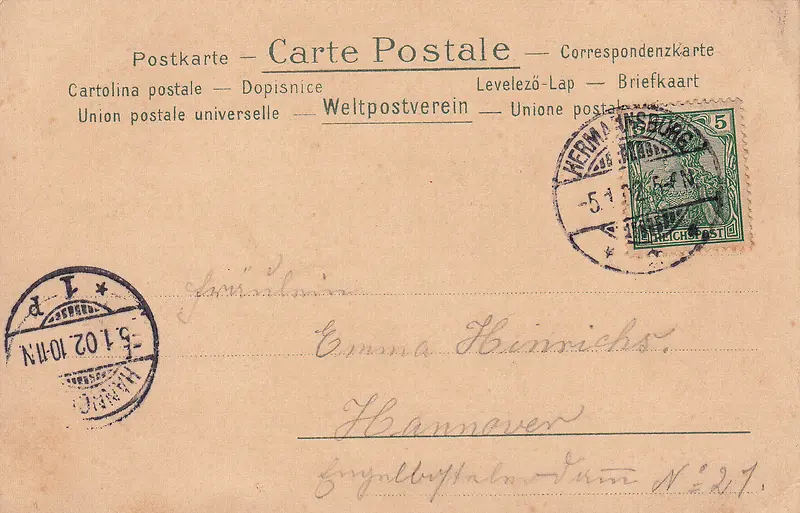 Postkarte — Carte Postale — Correspondenzkarte
Cartolina postale — Dopisnice Levelező-Lap — Briefkaart
Union postale universelle — Weltpostverein — Unione postale
HERMANNSBURG
-5.1.02. 5-6N
5
REICHSPOST
1 P
5.1.02.10-11N
HANNO
Fräulein
Emma Hinrichs.
Hannover
Engelbostelerdamm No 21.